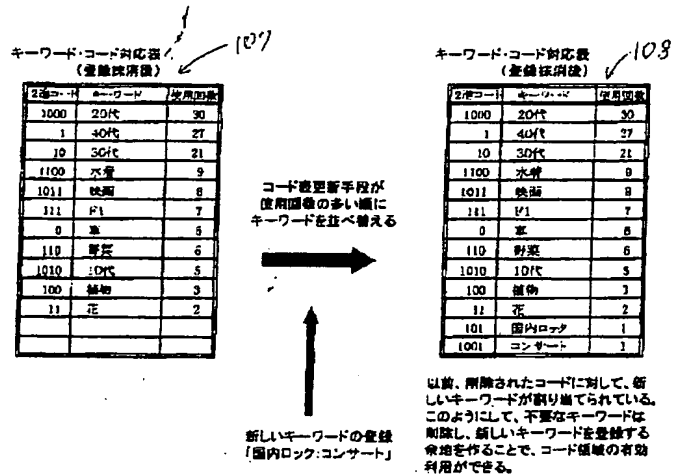 107
キーワード・コード対応表
(登録抹消後)
2進コード キーワード 使用回数
1000 20代 30
1 40代 27
10 30代 21
1100 水着 9
1011 映画 8
111 F1 7
0 車 6
110 野菜 6
1010 10代 5
100 植物 3
11 花 2
コード表更新手段が
使用回数の多い順に
キーワードを並べ替える
新しいキーワードの登録
「国内ロック:コンサート」
108
キーワード・コード対応表
(登録抹消後)
2進コード キーワード 使用回数
1000 20代 30
1 40代 27
10 30代 21
1100 水着 9
1011 映画 8
111 F1 7
0 車 6
110 野菜 6
1010 10代 5
100 植物 3
11 花 2
101 国内ロック 1
1001 コンサート 1
以前、削除されたコードに対して、新
しいキーワードが割り当てられている。
このようにして、不要なキーワードは
削除し、新しいキーワードを登録する
余地を作ることで、コード領域の有効
利用ができる。